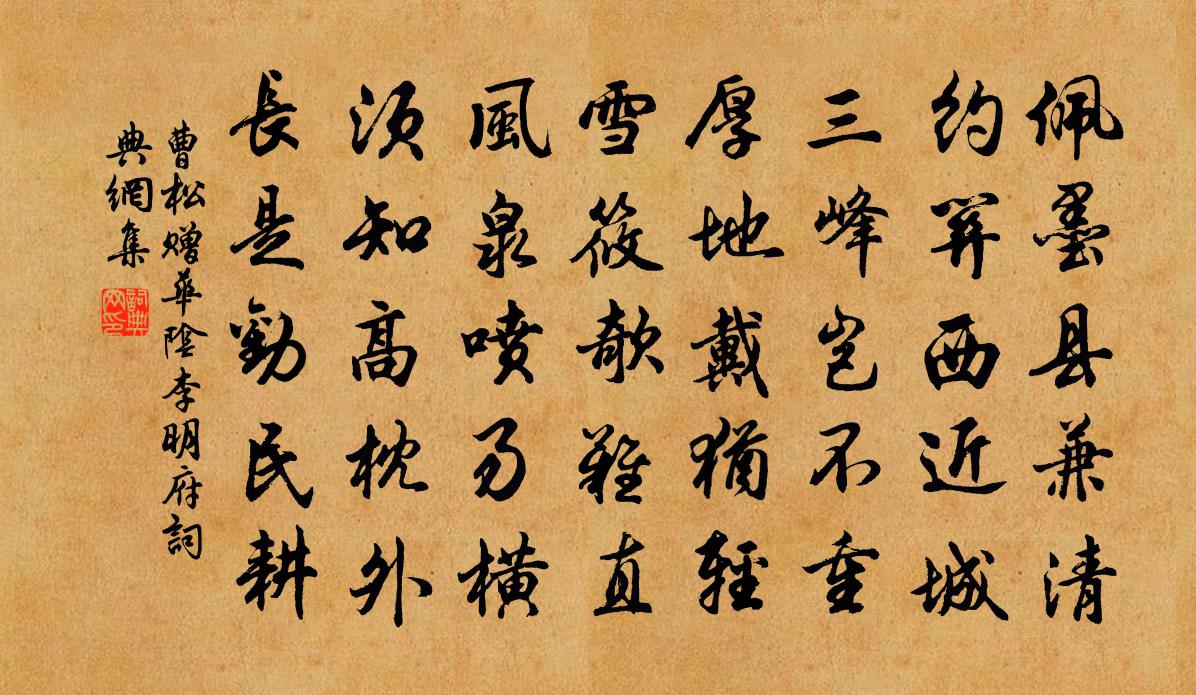 佩墨县兼清
約關西近城
三峰岂不重
厚地戴猶輕
雪筱欹難直
風泉噴易横
須知高枕外
長是勸民耕
曹松贈華陰李明府詞
典網集
詞典
网印